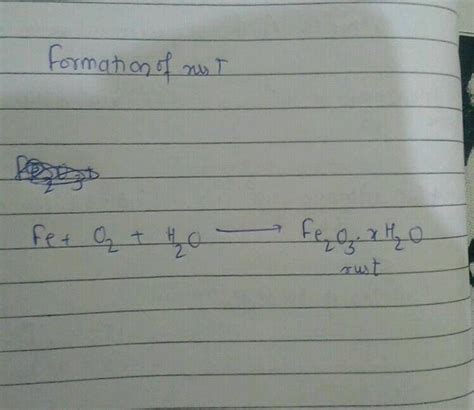 Formation of rust
Fe + O₂ + H₂O ⟶ Fe₂O₃·xH₂O
rust